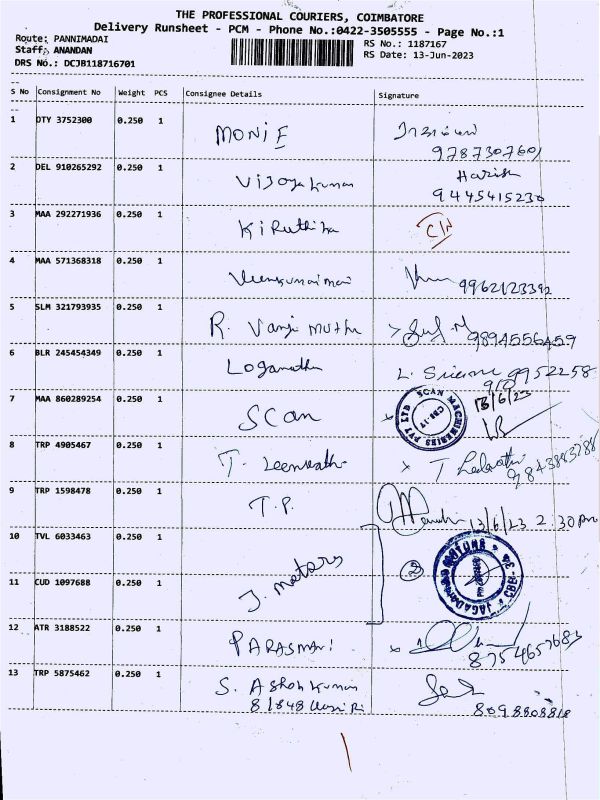 THE PROFESSIONAL COURIERS, COIMBATORE
Delivery Runsheet - PCM - Phone No.:0422-3505555 - Page No.:1
Route: PANNIMADAI
Staff: ANANDAN
DRS No.: DCJB118716701
RS No.: 1187167
RS Date: 13-Jun-2023
S No Consignment No Weight PCS Consignee Details Signature
1 DTY 3752300 0.250 1 MONIE
9787307601
2 DEL 910265292 0.250 1 Vijayakumar Harish
9445415230
3 MAA 292271936 0.250 1 Kiruthika
4 MAA 571368318 0.250 1 9962123392
5 SLM 321793935 0.250 1 R. Vanji muthu 9894556459
6 BLR 245454349 0.250 1 Loganathan L. 9952258
910
7 MAA 860289254 0.250 1 SCAN SCAN MACHINERIES PVT LTD CBE-17 13/6/23
8 TRP 4905467 0.250 1 T. T
9 TRP 1598478 0.250 1 T.P. 13/6/23 2.30pm
10 TVL 6033463 0.250 1
11 CUD 1097688 0.250 1 J. motors 2
12 ATR 3188522 0.250 1 PARASMANI
8754657683
13 TRP 5875462 0.250 1 S. Ashok kumar
81848 8098808818